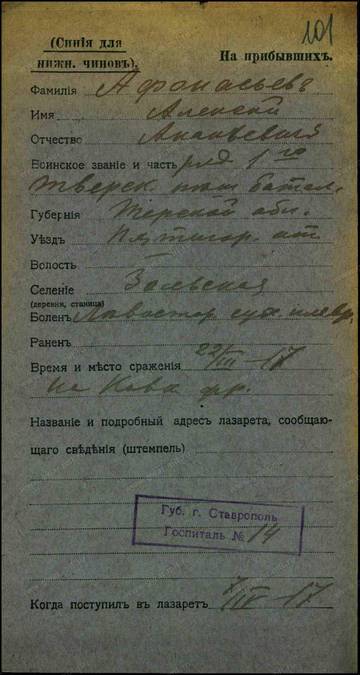 101
(Синія для
нижн. чиновъ).
На прибывшихъ.
Фамилія Афонасьевъ
Имя Алексѣй
Отчество
Воинское званіе и часть ряд. 1го
батал.
Губернія Терской обл.
Уѣздъ Пятигор. от
Волость
Селеніе Зольская
(деревня, станица)
Боленъ сух. плевр.
Раненъ
Время и мѣсто сраженія 22/III-17
на Кавк. фр.
Названіе и подробный адресъ лазарета, сообщаю-
щаго свѣдѣнія (штемпель)
Губ. г. Ставрополь
Госпиталь № 14
Когда поступилъ въ лазаретъ 7/IV-17